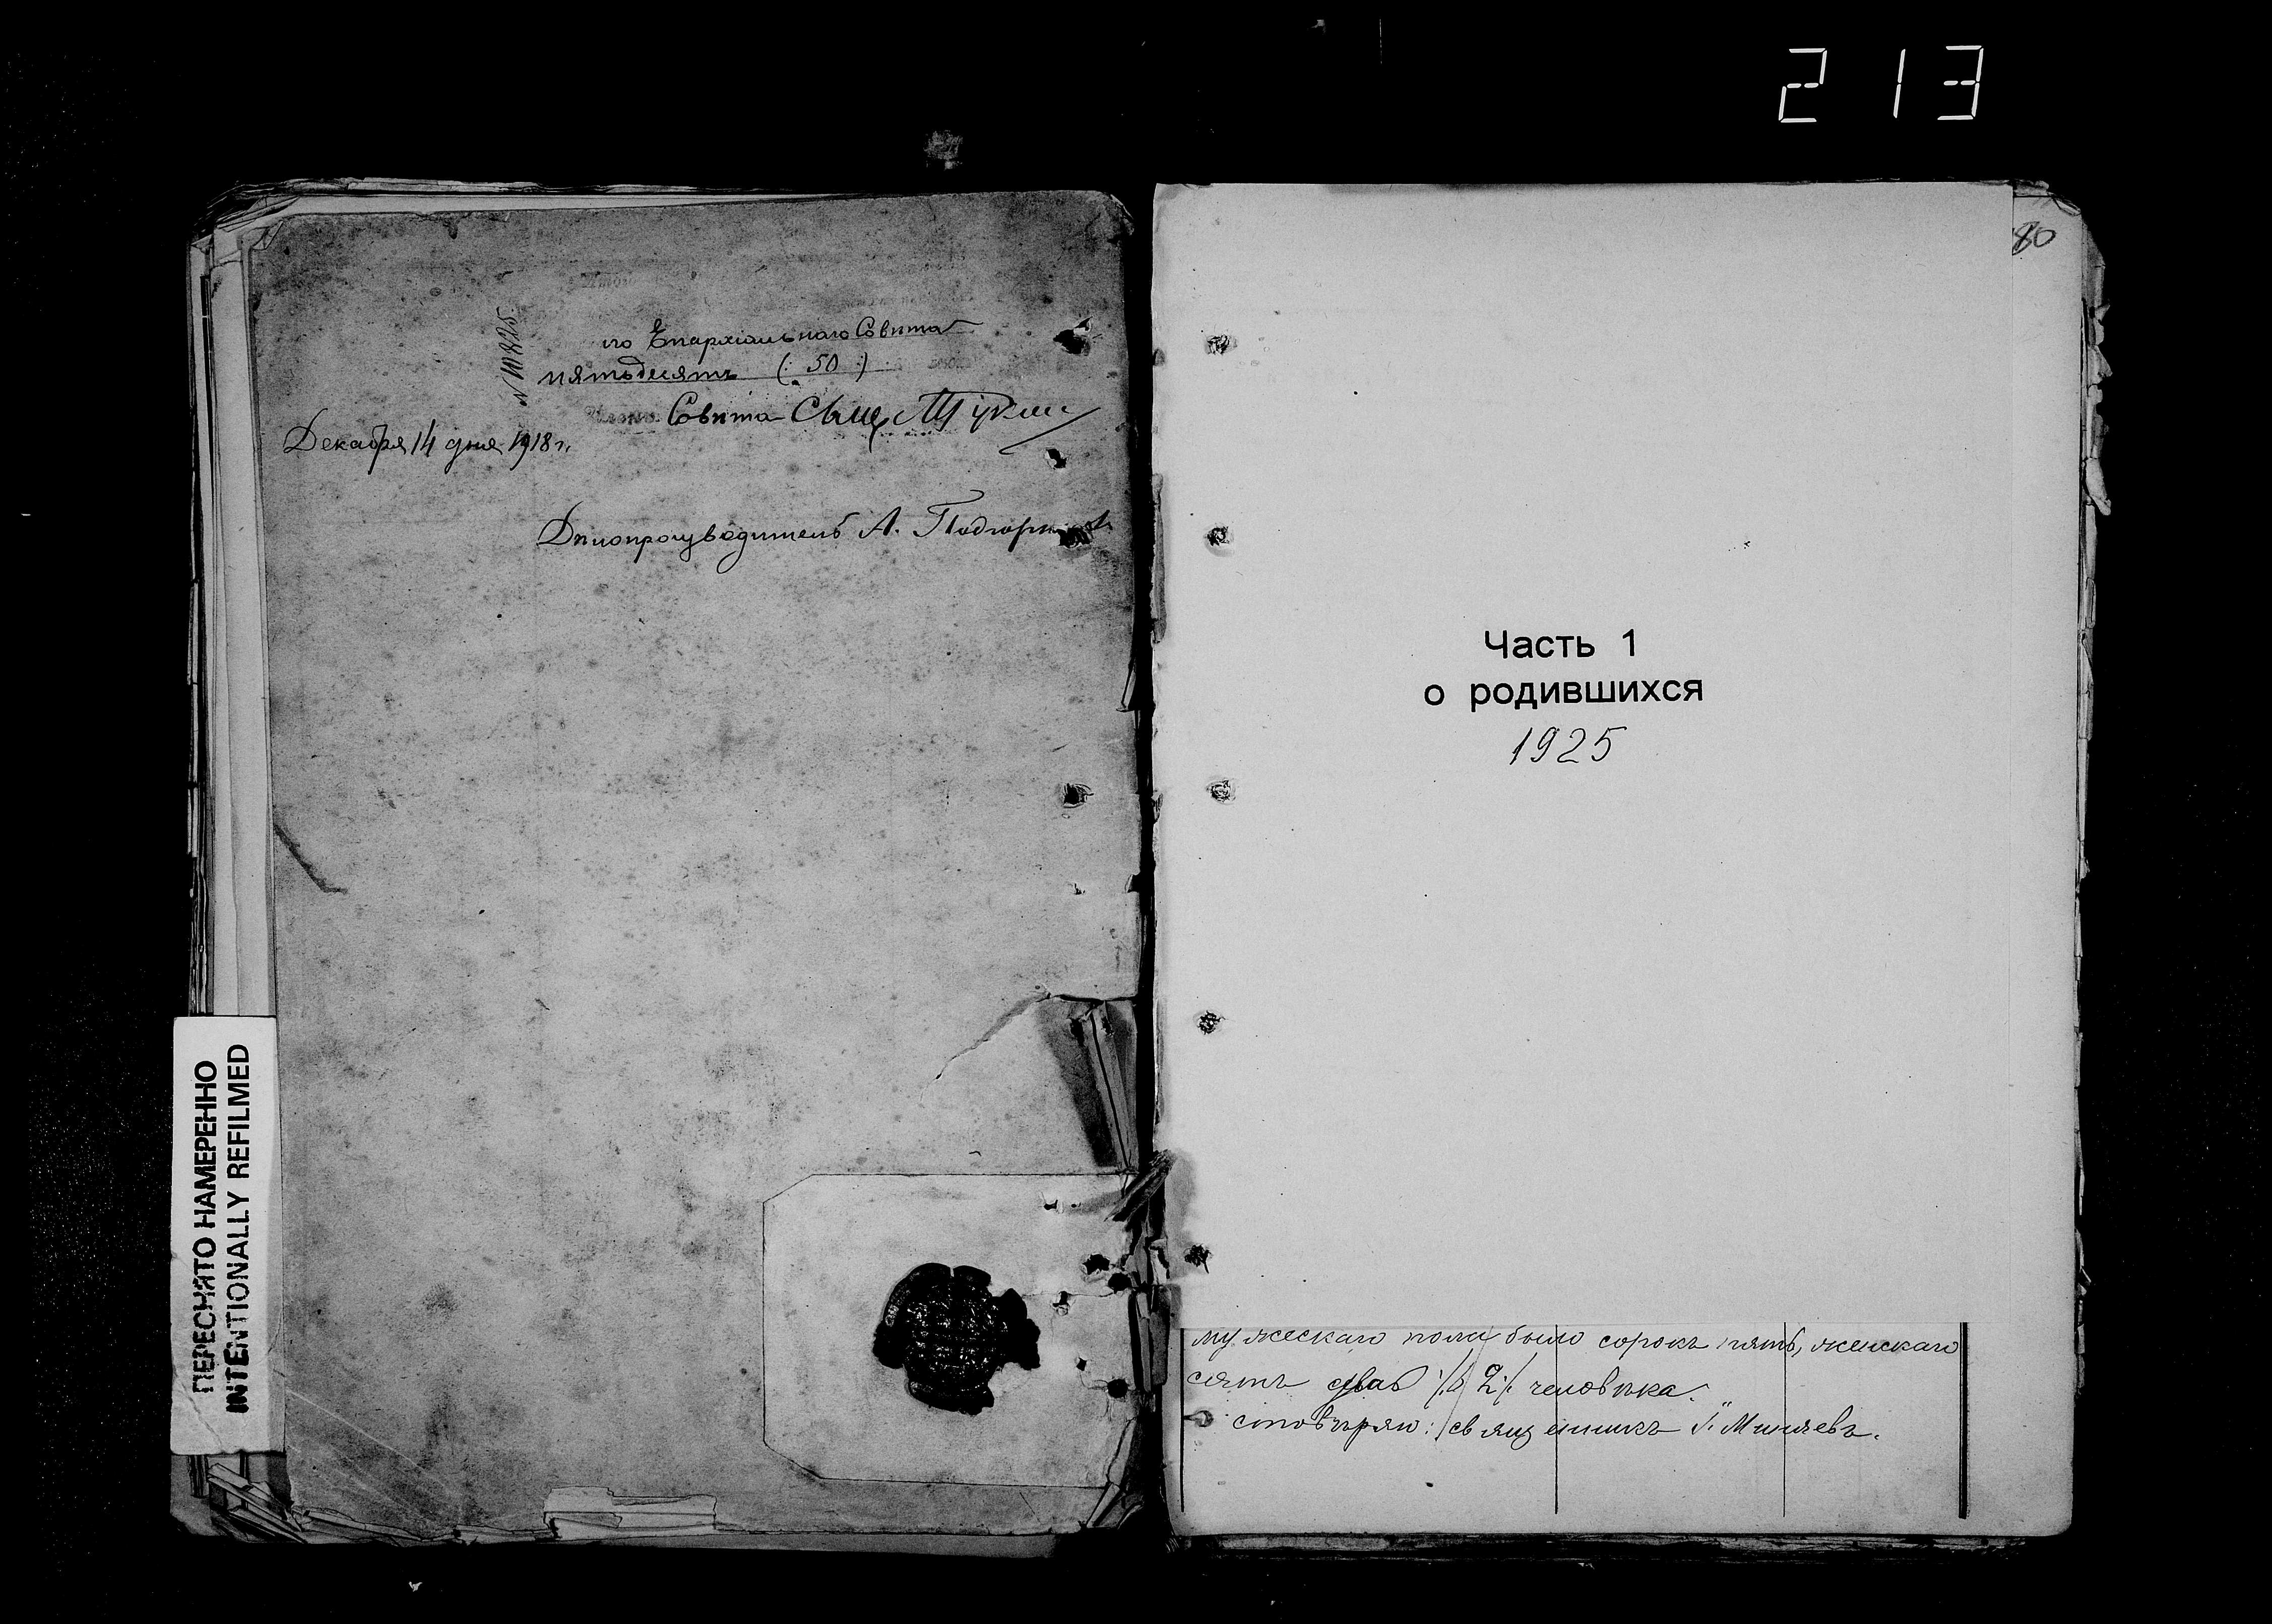 213
80
№ 10225
го Епархіальнаго Совѣта
пятьдесятъ (: 50 :)
Совѣта Свящ.
Декабря 14 дня 1918 г.
Дѣлопроизводитель А.
ПЕРЕСНЯТО НАМЕРЕННО
INTENTIONALLY REFILMED
Часть 1
о родившихся
1925
мужескаго пола было сорокъ пять, женскаго
сятъ два человѣка.
стовѣряю: священникъ І. Миняевъ.